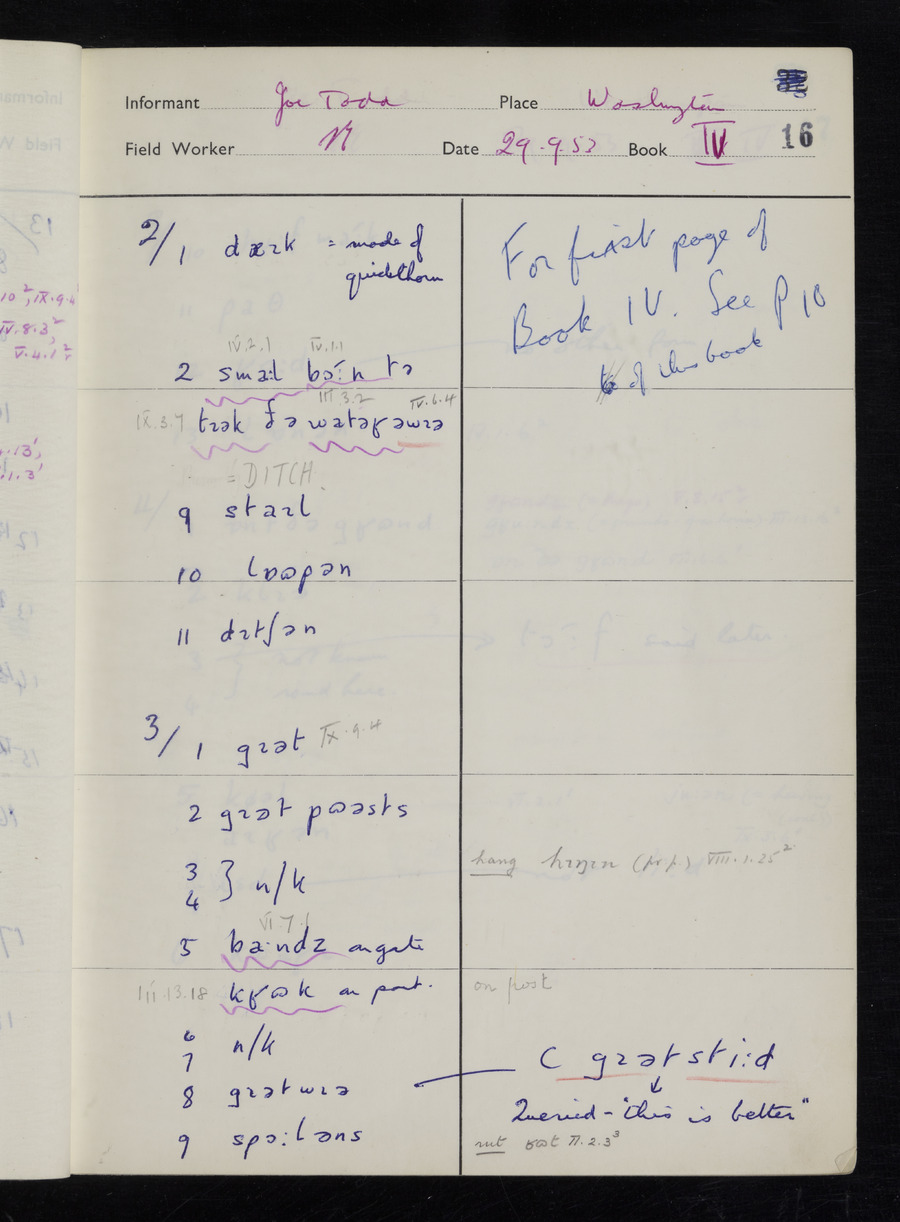 Informant Joe Todd Place Washington
Field Worker N Date 29.9.53 Book IV 16
2/1 dæɪk = made of
quickthorn
For first page of
Book IV. See P 10
of this book
IV.2.1 IV.1.1
2 smaːl bɔːn tə
III.3.2 IV.6.4
IX.3.7 tɪək fə watəʁəwɪə
= DITCH.
9 staɪl
10 lɒapən
11 dɪtʃən
3/1 gɪət IX.9.4
2 gɪət pɒəsts
3
4 } n/k
hang hɪŋɪn (pr.p.) VIII.1.25²
VI.7.1
5 baːndz on gate
III.13.18 kʁɒk on post.
on post
6
7 n/k
C gɪət stiːd
8 gɪətwɪə
Queried - "this is better"
9 spɔːləns
rut ʁɒt II.2.3³